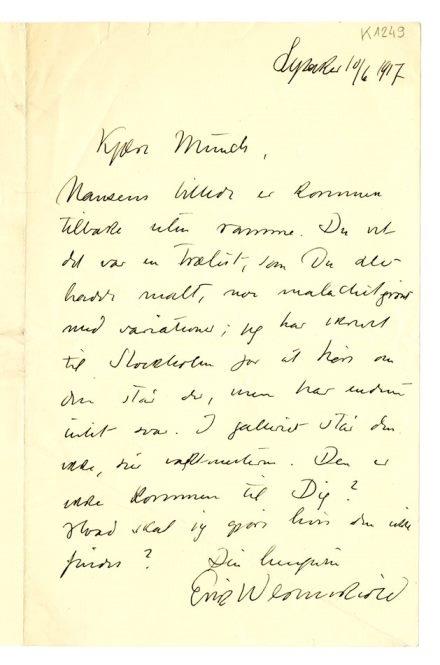 K1249
Lysaker 10/6 1917
Kjære Munch,
Nansens billede er kommen
tilbake uten ramme. Du vet
det var en trælist, som Du selv
hadde malt, mor malachitgrønt
med variationer; jeg har skrevet
til Stockholm for at høre om
den står der, men har endnu
intet svar. I galleriet står den
ikke, sier vaktmesteren. Den er
ikke kommen til Dig?
Hvad skal jeg gjøre hvis den ikke
findes?
Din hengivne
Erik Werenskiold